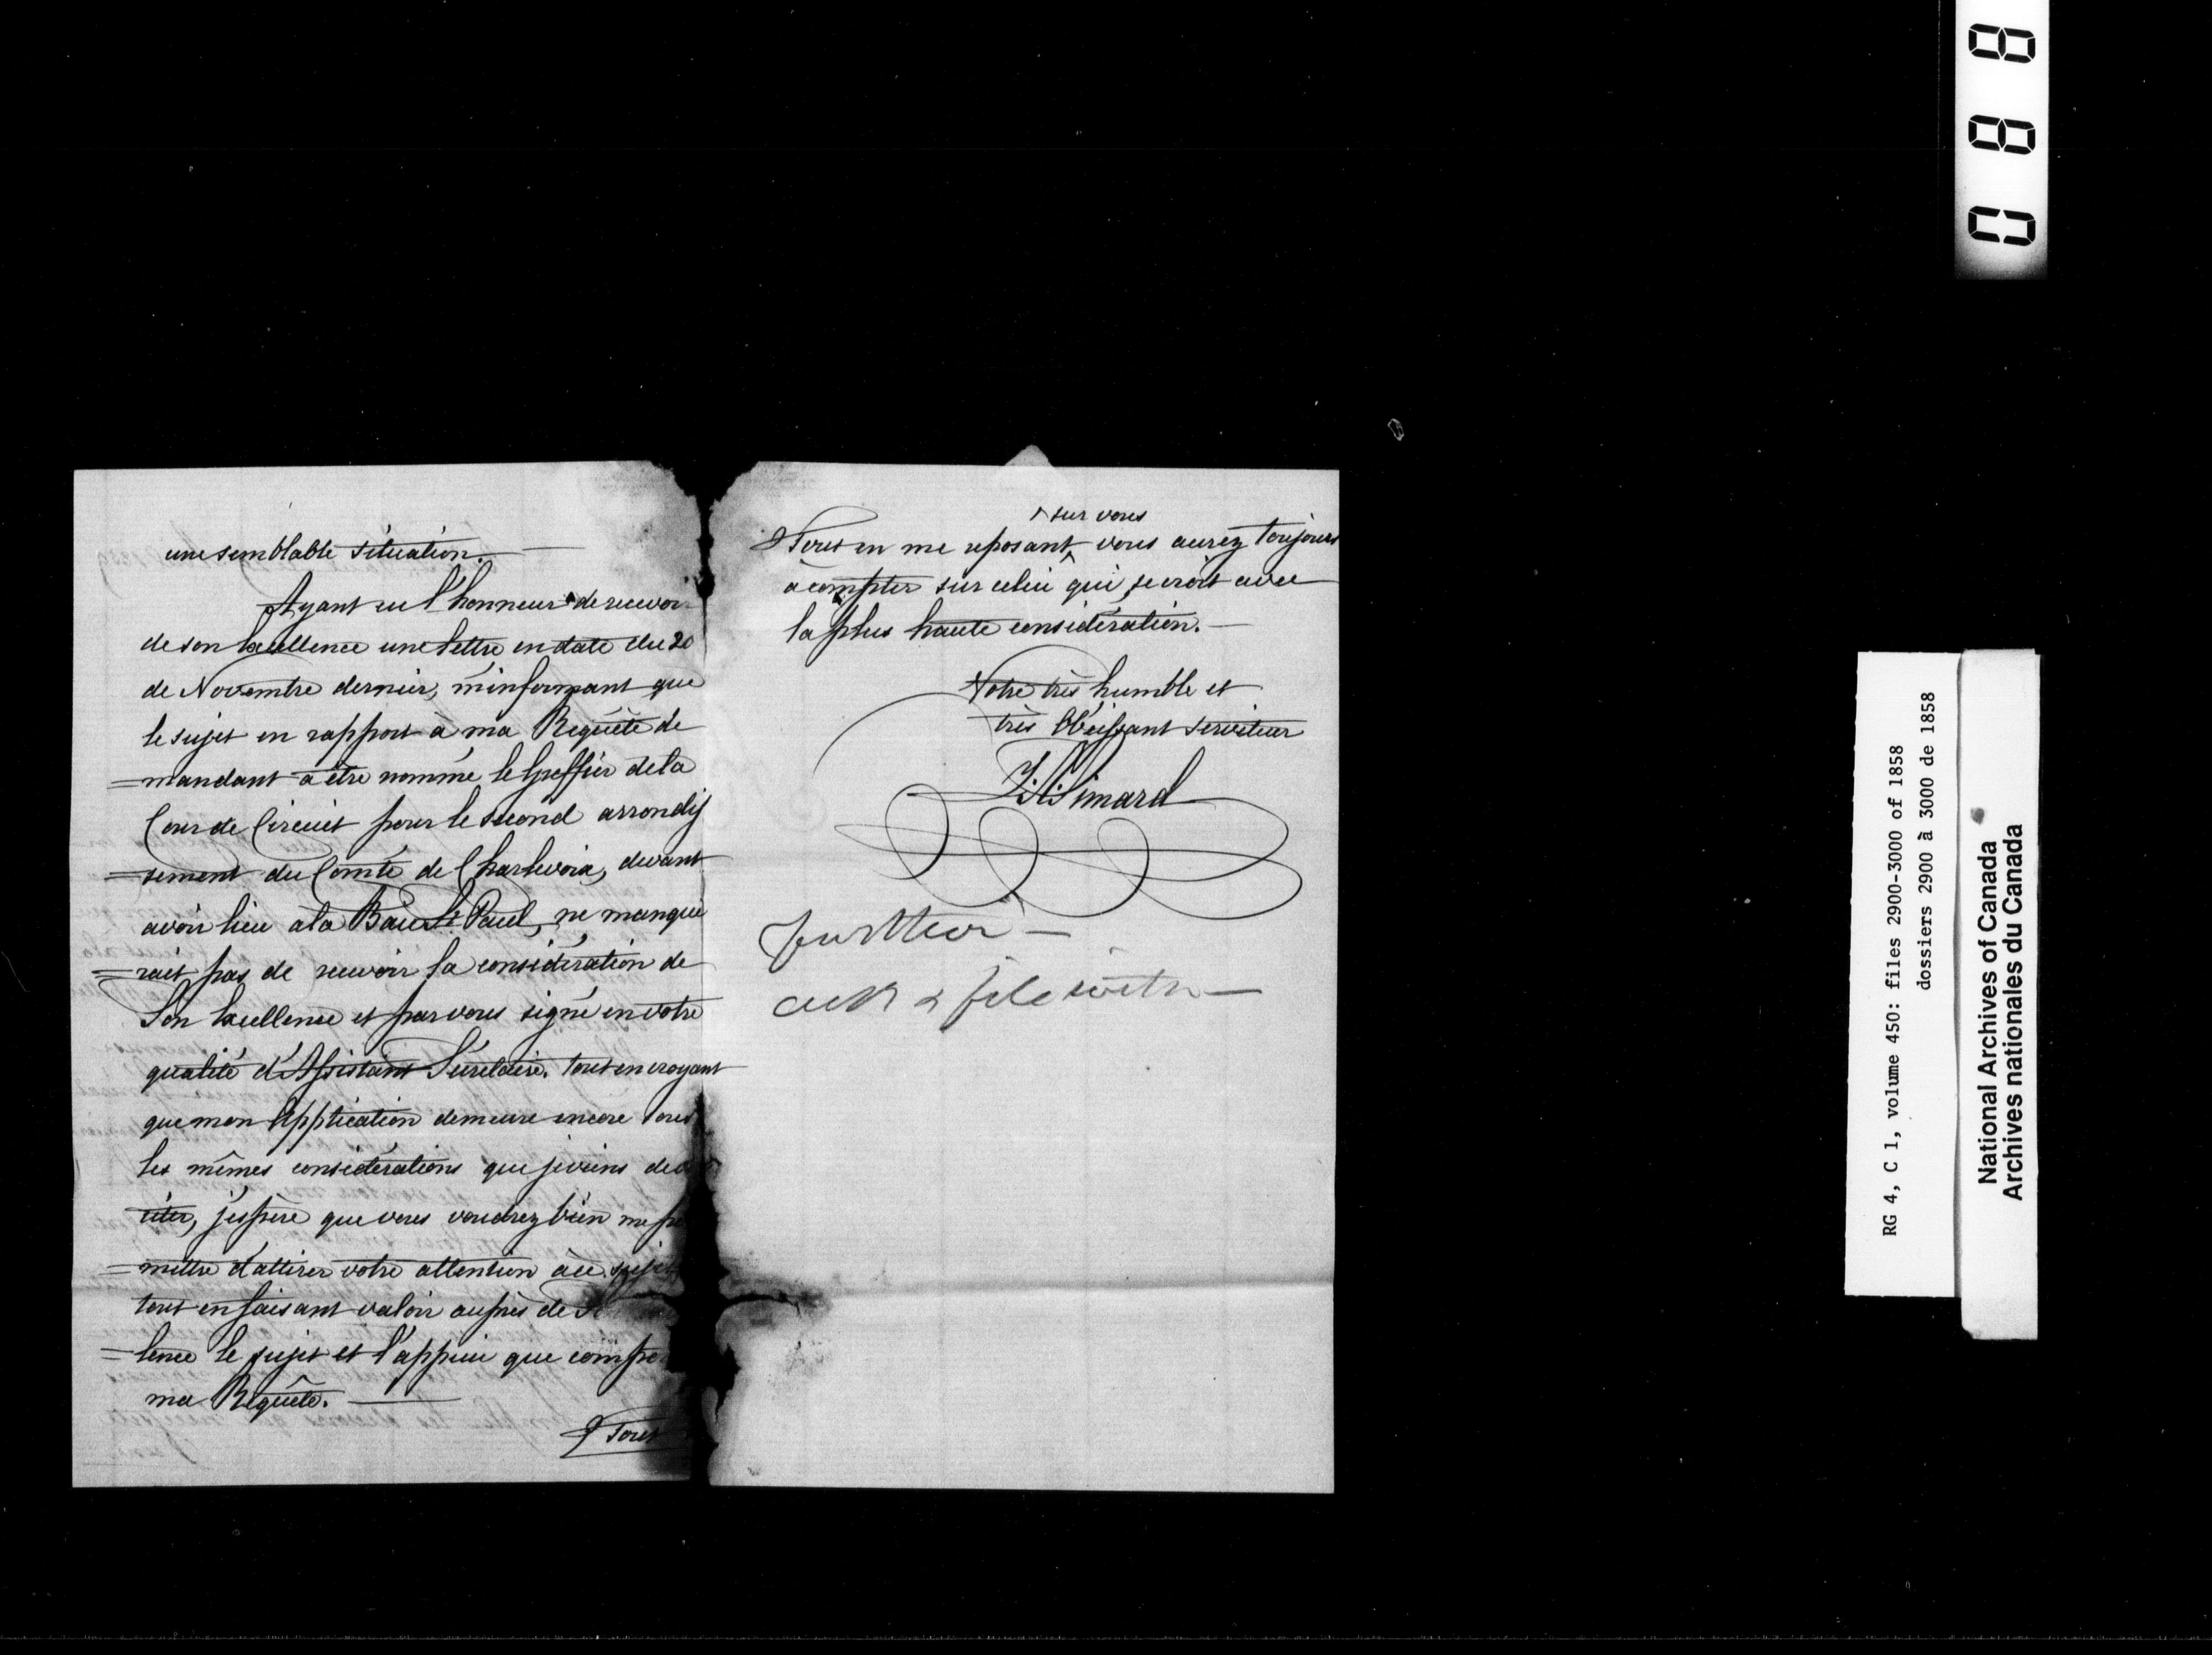 une semblable situation. —
Ayant eu l'honneur de recevoir
de son Excellence une lettre en date du 20
de Novembre dernier, m'informant que
le sujet en rapport à ma Requête de
=mandant à être nommé le Greffier de la
Cour de Circuit pour le second arrondis
=sement du Comté de Charlevoix, devant
avoir lieu à la Baie St Paul, ne manque
=rait pas de recevoir la considération de
Son Excellence et par vous signé en votre
qualité d'Assistant Sécrétaire. tout en croyant
que mon Application demeure encore sous
les mêmes considérations que je viens de
citer, j'espère que vous voudrez bien me pe
=mettre d'attirer votre attention à ce sujet
tout en faisant valoir auprès de
=lence le sujet et l'appui que comp
ma Requête. —
Tout
Tout en me reposant ^sur vous vous aurez toujours
à compter sur celui qui se croit avec
la plus haute considération. —
Votre très humble et
très Obéissant serviteur
Simard
further —
& file with —
0 8 8
RG 4, C 1, volume 450: files 2900-3000 of 1858
dossiers 2900 à 3000 de 1858
National Archives of Canada
Archives nationales du Canada